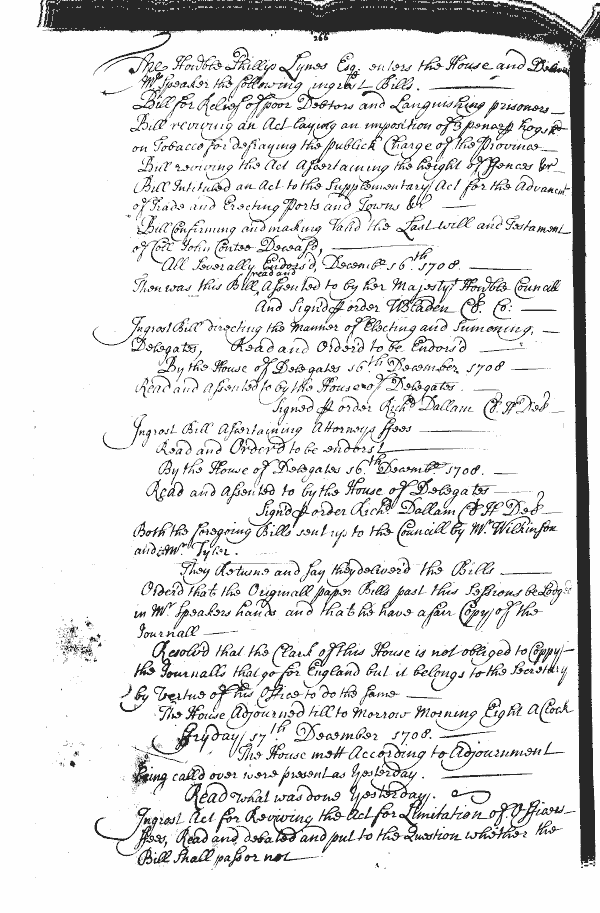 266
The Honble Phillip Lynes Esqr. enters the House and Deliver
Mr. Speaker the following ingrost Bills.
Bill for Relief of poor Debtors and Languishing prisoners
Bill reviving an Act laying an imposition of 3 pence p hogshd
on Tobacco for defraying the publick Charge of the Province
Bill reviving the Act Ascertaining the height of ffences &c
Bill Intituled an Act to the Supplementary Act for the Advancmt
of Trade and Erecting Ports and Towns &c
Bill Confirming and making Valid the Last will and Testament
of Coll John Contee Deceasd,
All Severally Endorsd, Decembr 16th 1708
read and
Then was this Bill Assented to by her Majestys Honble Councill
And Signd p order WBladen Cl. Co:
Ingrost Bill directing the Manner of Electing and Sumoning,
Delegates, Read and Orderd to be Endorsd
By the House of Delegates 16th December 1708
Read and assented to by the House of Delegates.
Signed p order Richd Dallam Cl. H Del
Ingrost Bill Ascertaining Attorneys ffees
Read and Orderd to be endorst
By the House of Delegates 16.th Decembr 1708.
Read and assented to by the House of Delegates
Signd p order Richd Dallam Cl H Del
Both the foregoing Bills sent up to the Councill by Mr. Wilkinson
and Mr. Tyler.
They Returne and say they deliverd the Bills
Orderd that the Originall paper Bills past this Sessions be Lodged
in Mr Speakers hands and that he have a fair Copy of the
Journall
Resolvd that the Clark of this House is not obliged to Coppy
the Journalls that go for England but it belongs to the Secretary
by Vertue of his Office to do the same
The House Adjourned till to Morrow Morning Eight A Clock
ffryday 17th December 1708.
The House mett According to Adjournment
being calld over were present as Yesterday.
Read what was done Yesterday.
Ingrost Act for Reviving the Act for Limitation of Officers
ffees, Read and debated and put to the Question whether the
Bill Shall pass or not